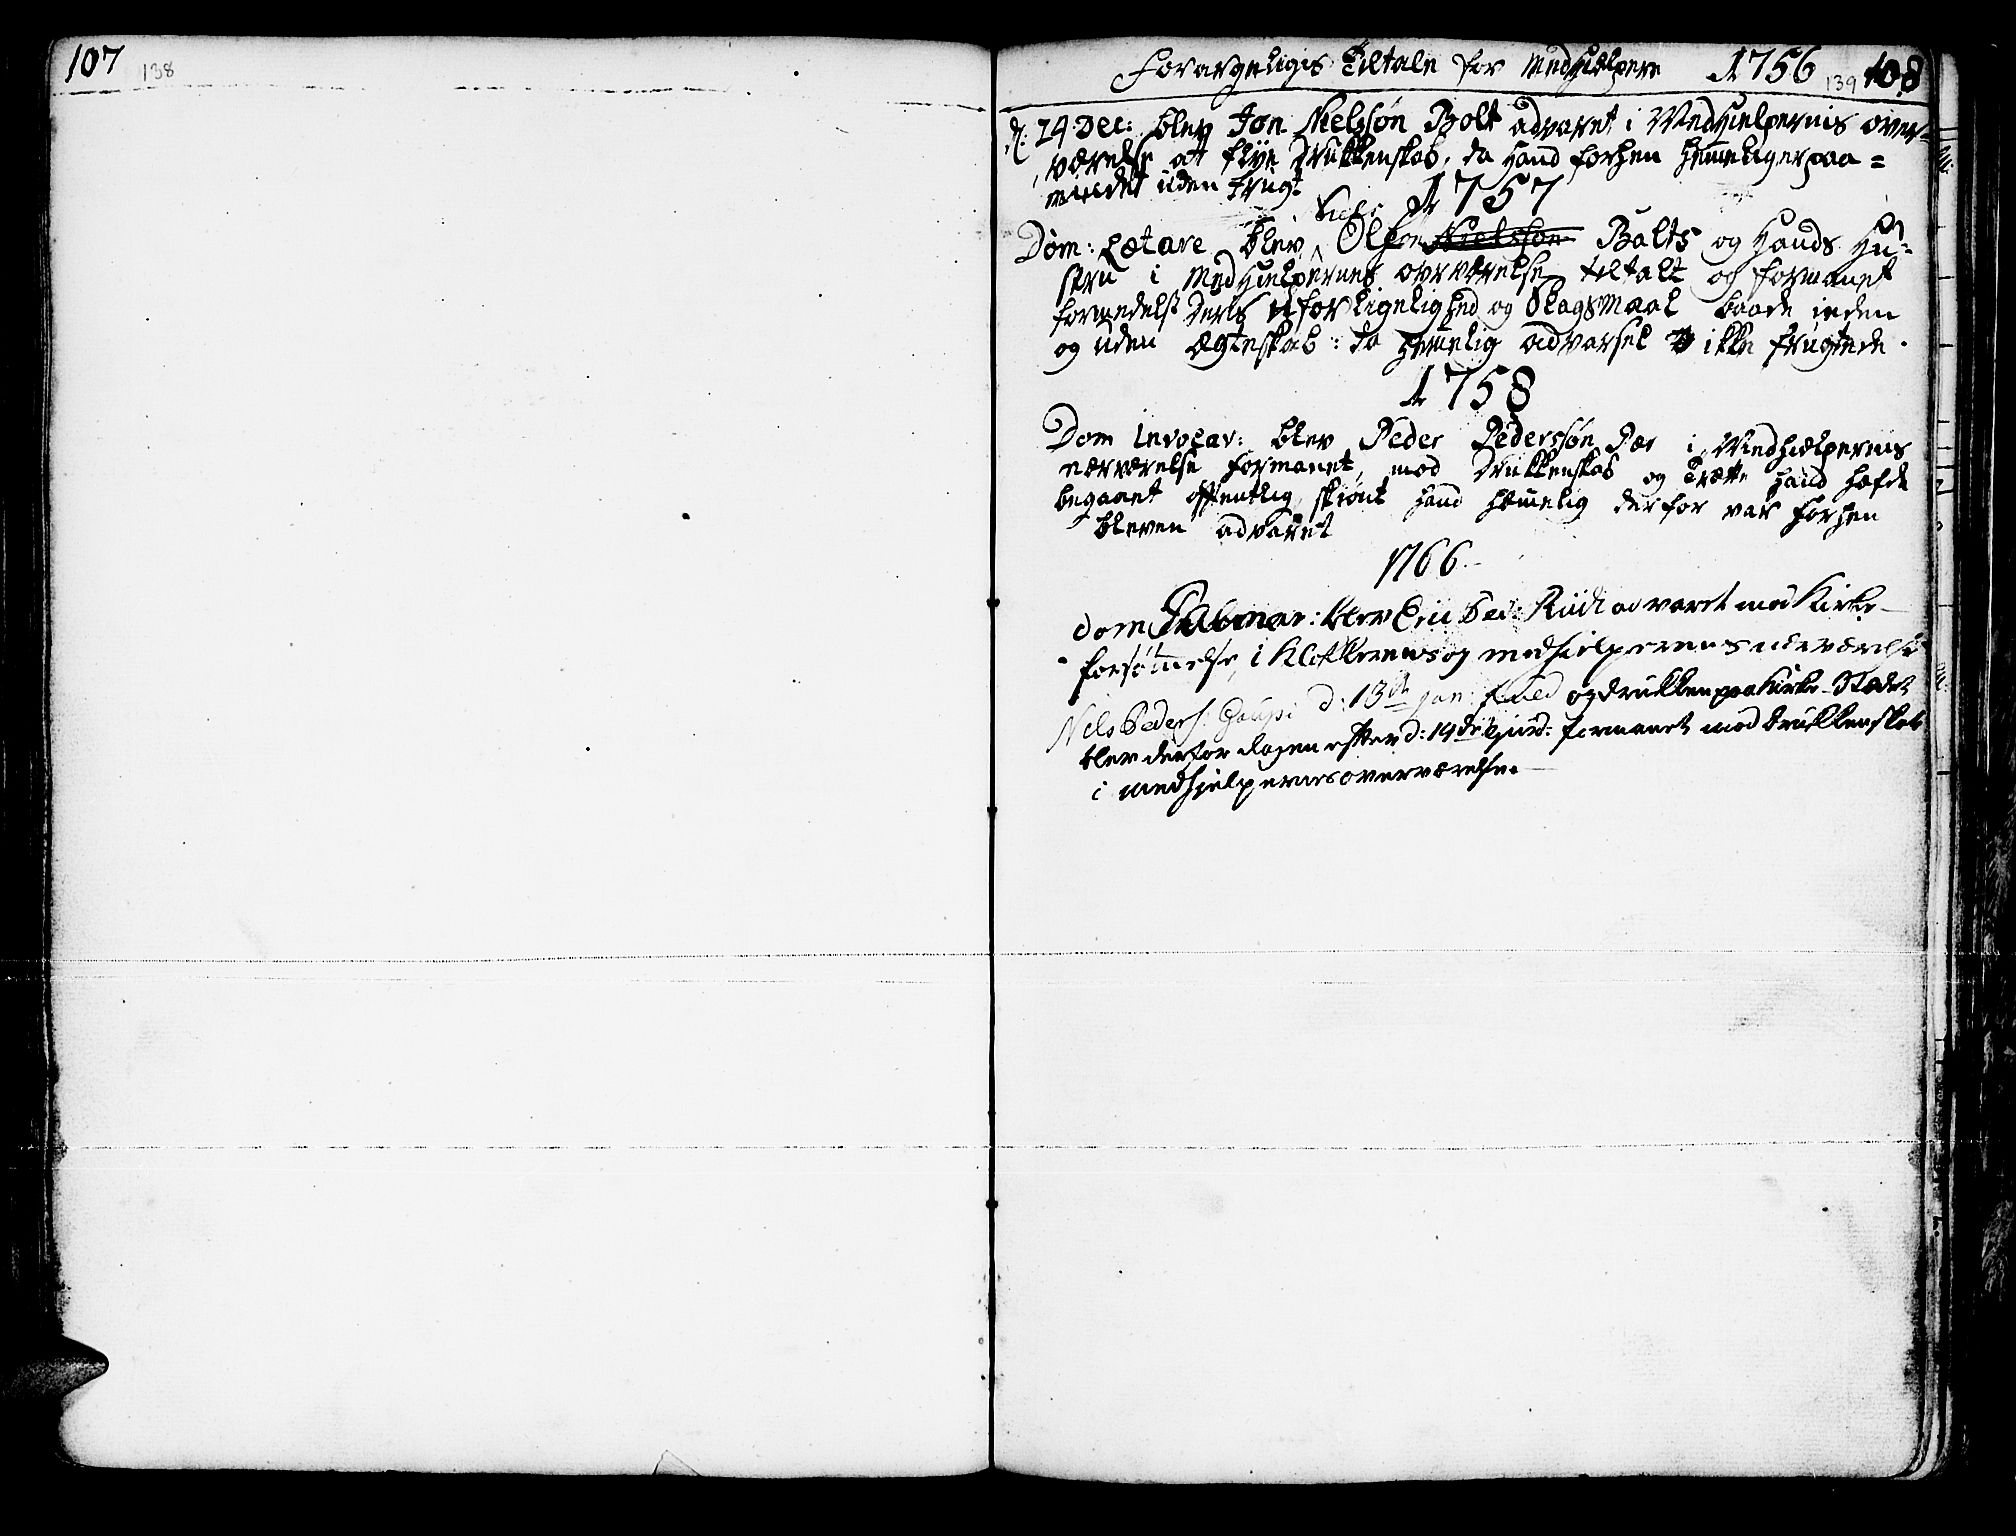 107
138
Forargeligis Tiltale for Medhielpere 1756
139 108
d. 24. Dec: blev Jon Nielssøn Bolt advaret i Medhielpernis over=
værelse at flye Drukkenskab, da hand forhen hemmelig er paa=
mindet uden Frugt
1757
Niels
Dom: Lætare blev Olson Nielssøn Bolts og Hands Hu=
stru i Medhielpernes overværelse tiltalt og formanet
formedelst Deris uforligelighed og Slagsmaal baade inden
og uden Ægteskab: da hemmelig advarsel ikke frugtede.
1758
Dom Invocav: blev Peder Pederssøn i Medhielpernis
nærværelse formanet, mod Drukkenskab og Trætte hand hafde
begaaet offentlig, skiønt hand hemmelig derfor var forhen
bleven advaret
1766.
dom Palmar: blev Eric Ped: Rud advaret mod Kirke-
forsømmelse, i Klokkerens og medhielpernes nærværelse
Nels Peders: Gaupi d: 13de jan: og drukken paa Kirke-Stædet
blev derfor dagen efter d: 14de ejusd: formanet mod Drukkenskab
i medhjelpernes overværelse.